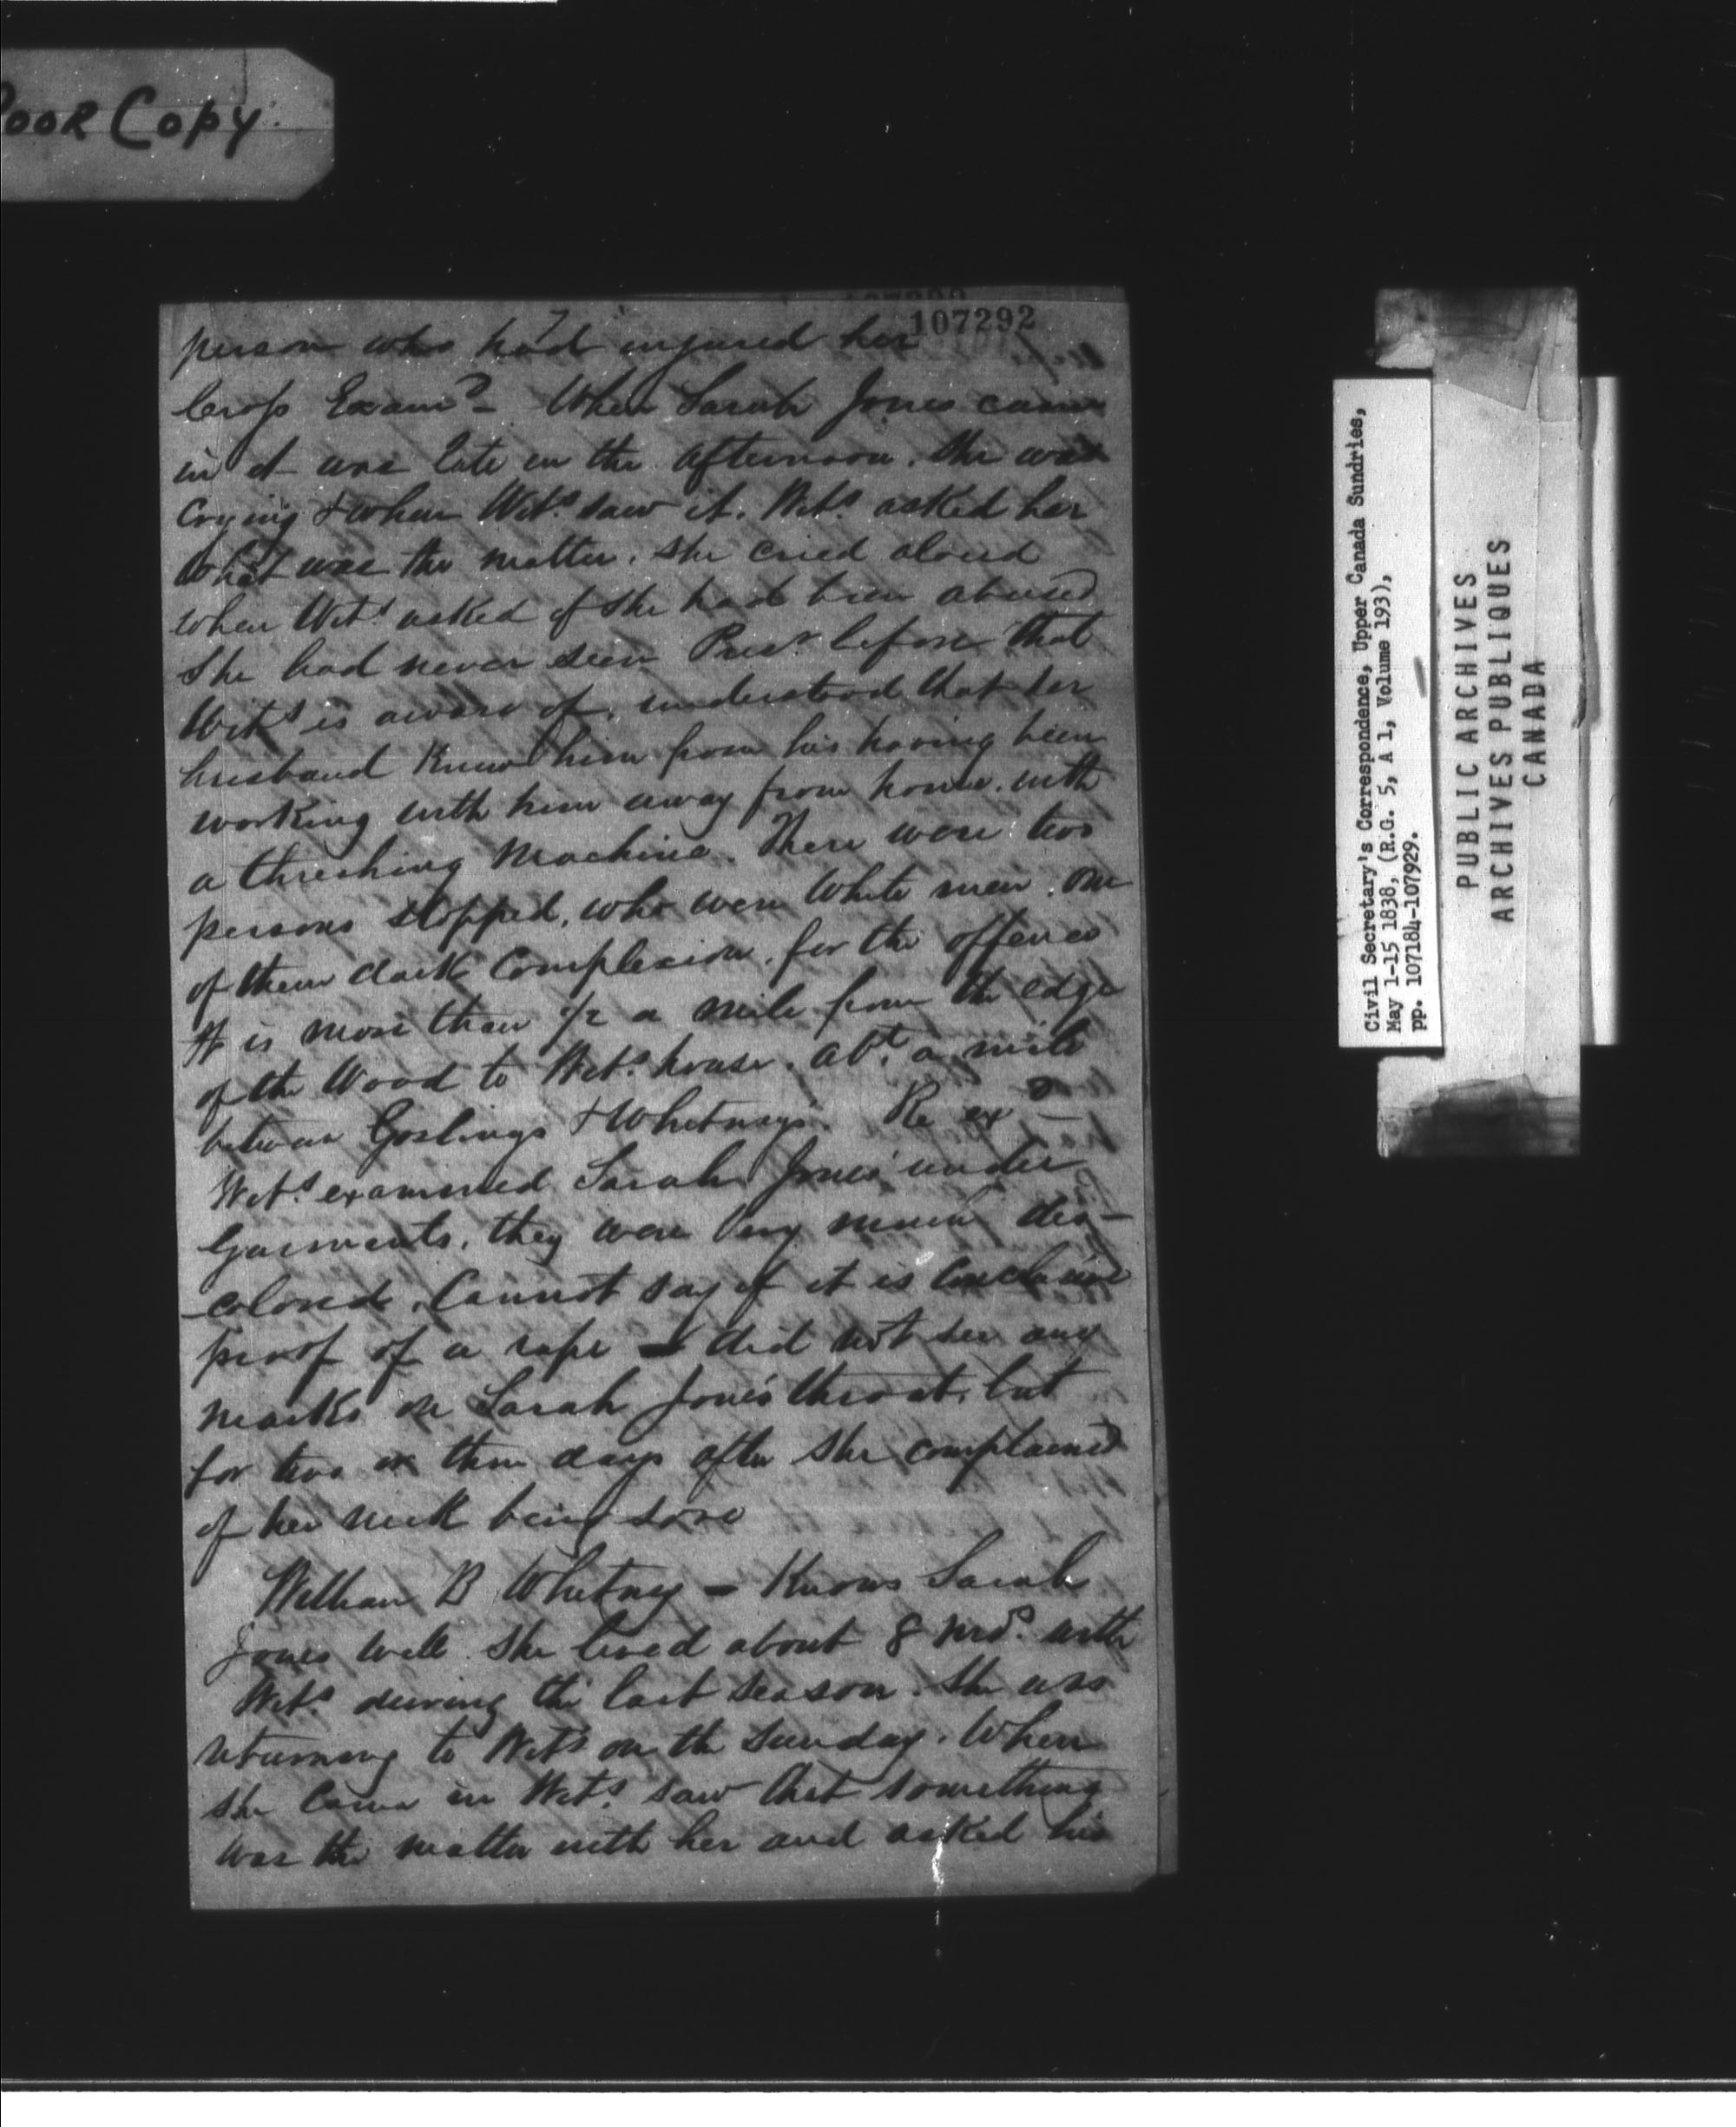 POOR Copy.
7
107292
person who had injured her
Cross Exam^d - When Sarah Jones came
in it was late in the afternoon. She was
Crying & when Wit^s. saw it. Wit^s. asked her
what was the matter. She cried aloud
when Wit^s asked if she had been abused
She had never seen Pris^r. before that
Wit^s is aware of. understood that her
husband Knew him from his having been
working with him away from home. with
a threshing Machine. There were two
persons stopped. who were White men. one
of them dark Complexion. for the offence
It is more than 1/2 a mile from the edge
of the Wood to Wit^s. house. ab^t. a mile
between Goslings & Whitneys. Re ex^d -
Wit^s. examined Sarah Jones' under
Garments. they were very much dis-
-colored. Cannot say if it is Conclusive
proof of a rape - did not see any
marks on Sarah Jones throat. but
for two or three days after she complained
of her neck being sore
William B Whitney - Knows Sarah
Jones well. She lived about 8 mos. with
Wit^s. during the last season. She was
returning to Wit^s on the Sunday. When
she Came in Wit^s. saw that something
was the matter with her and asked his
Civil Secretary's Correspondence, Upper Canada Sundries,
May 1-15 1838, (R.G. 5, A 1, Volume 193),
pp. 107184-107929.
PUBLIC ARCHIVES
ARCHIVES PUBLIQUES
CANADA